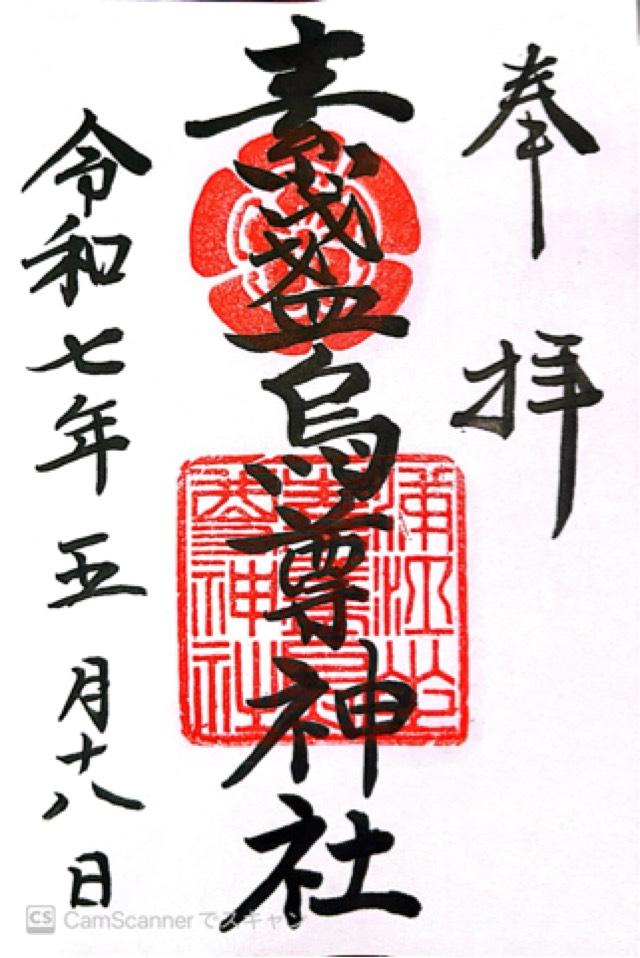 奉拝
素盞烏尊神社
令和七年五月十八日
CS CamScannerでスキャン